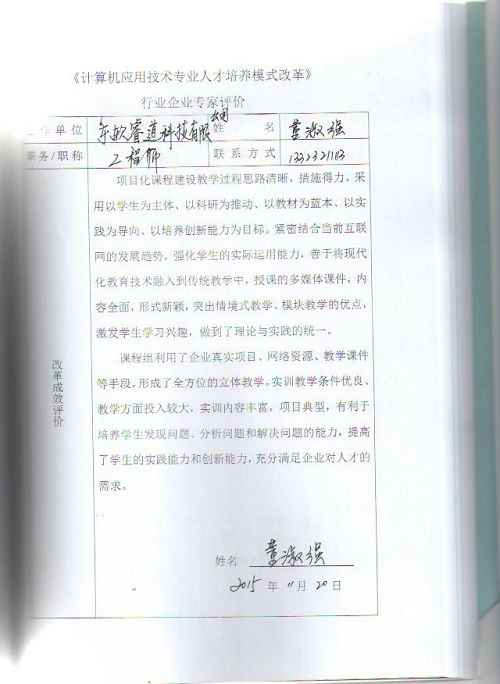 《计算机应用技术专业人才培养模式改革》
行业企业专家评价
工作单位 东软睿道科技有限公司 姓名 董淑强
职务/职称 工程师 联系方式
项目化课程建设教学过程思路清晰，措施得力。采
用以学生为主体、以科研为推动、以教材为蓝本、以实
践为导向、以培养创新能力为目标。紧密结合当前互联
网的发展趋势，强化学生的实际运用能力，善于将现代
化教育技术融入到传统教学中，授课的多媒体课件，内
容全面，形式新颖，突出情境式教学、模块教学的优点，
激发学生学习兴趣，做到了理论与实践的统一。
改革成效评价
课程组利用了企业真实项目、网络资源、教学课件
等手段，形成了全方位的立体教学。实训教学条件优良、
教学方面投入较大，实训内容丰富，项目典型，有利于
培养学生发现问题、分析问题和解决问题的能力，提高
了学生的实践能力和创新能力，充分满足企业对人才的
需求。
姓名 董淑强
2015 年 11 月 20 日